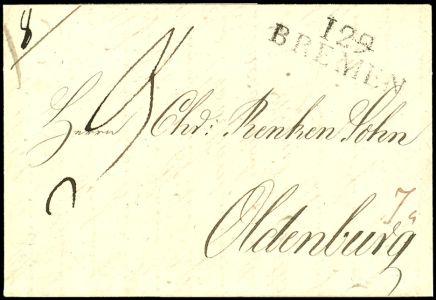 8
129
BREMEN
Herrn Chr: Renken Sohn
Oldenburg
7